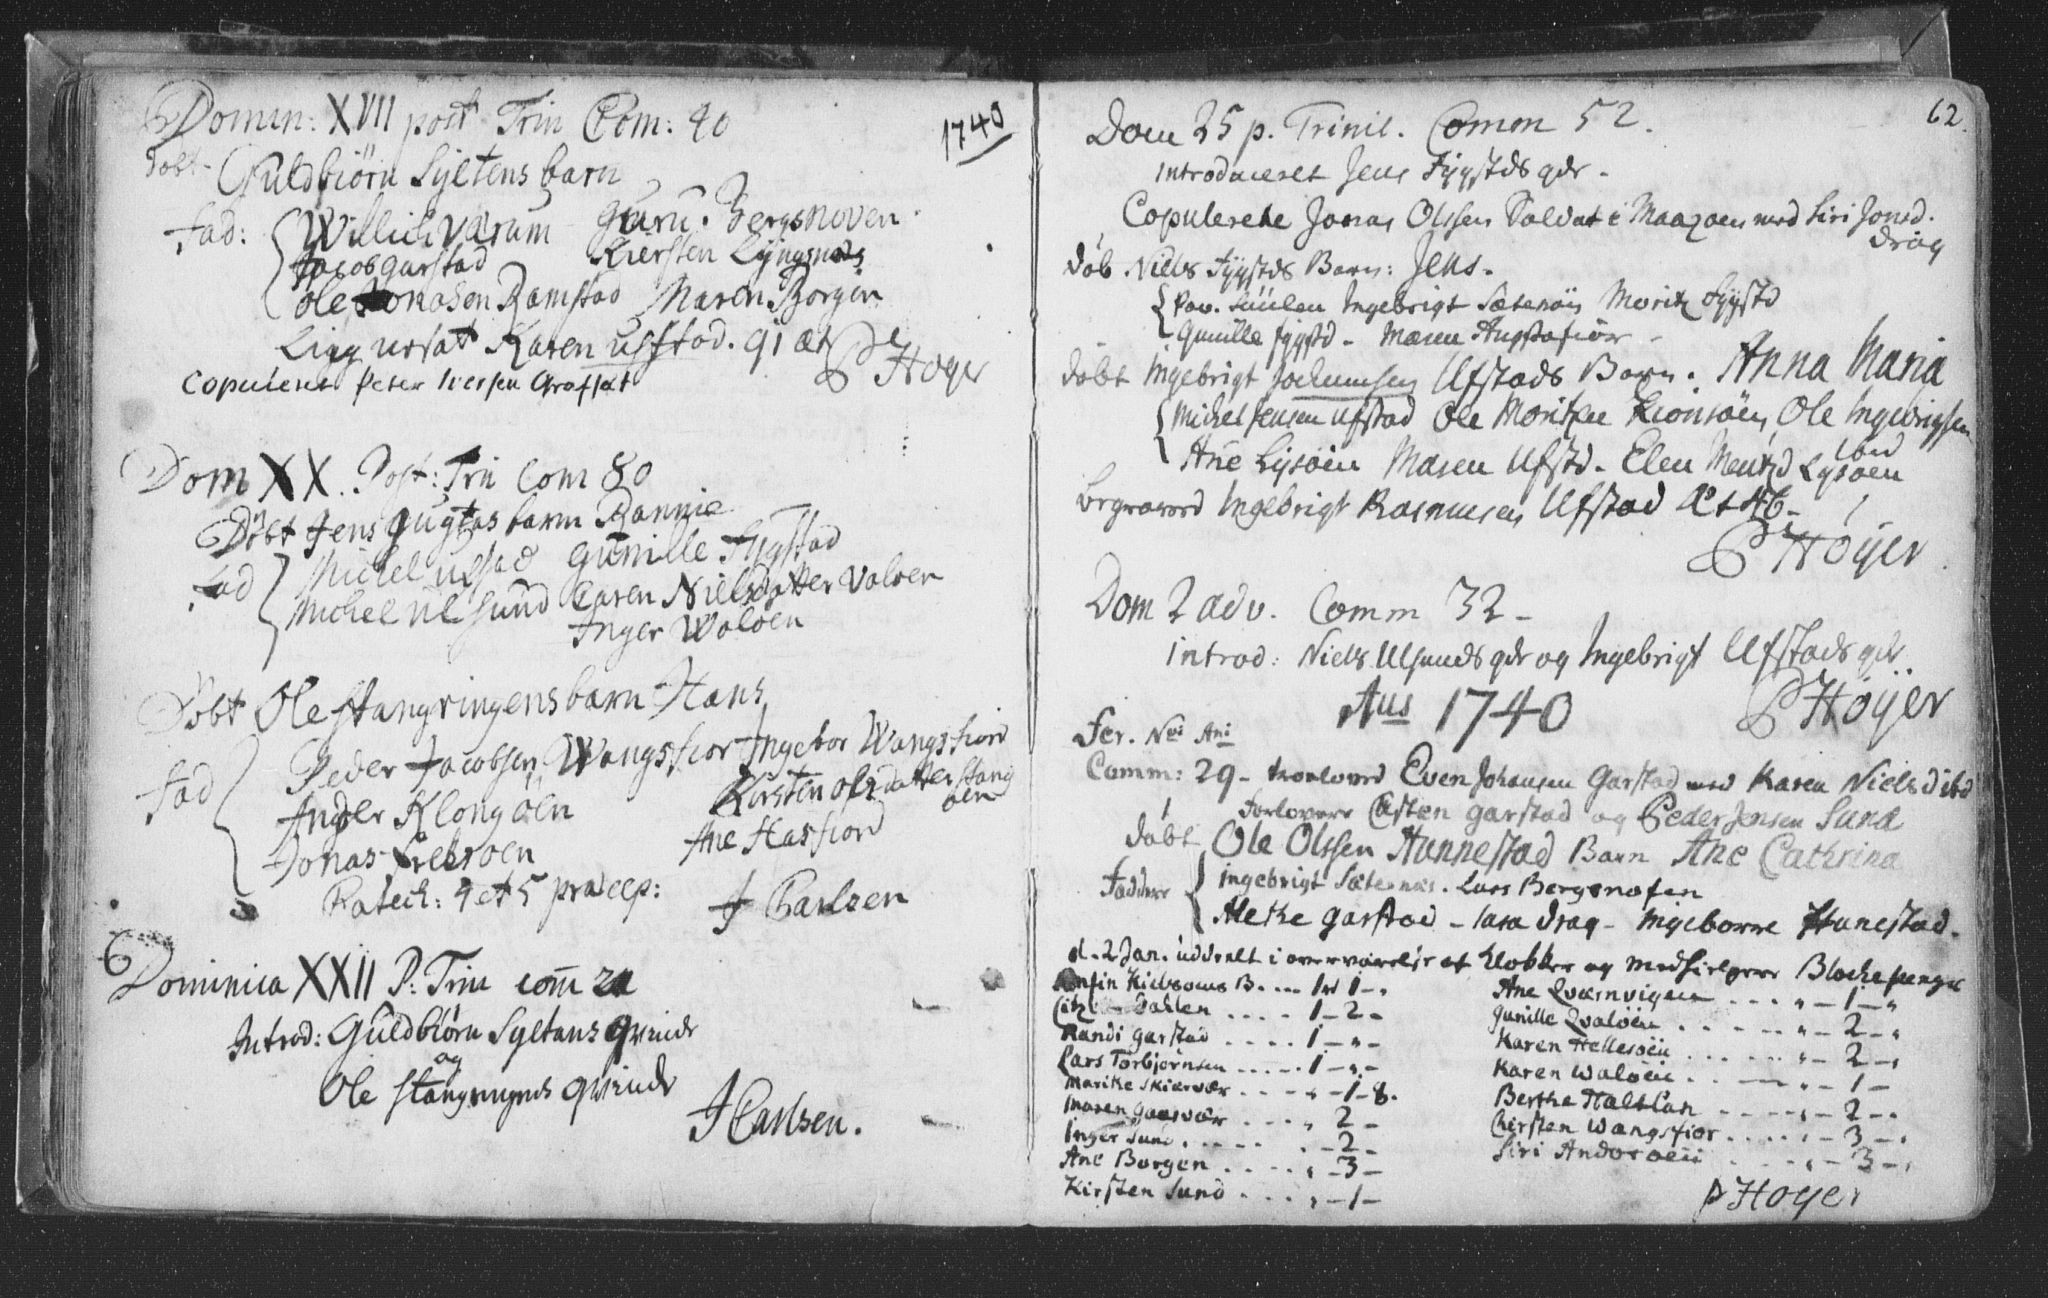 1740
Domin: XVII post Trin Com: 40
Döbt Guldbiörn Syltens barn
Fad: Willich Værum Guru Bergsnoven
Jacob Garstad Kiersten Lyngsnæs
Ole Jonasen Ramstad Maren Borgen
Karen Ufstad. 91 æt
P Höyer
Copuleret Peter Iversen
Dom XX. Post: Trin Com 80
Döbt Jens barn Rannie
Fad Michel Ufstad Gunille Fygstad
Michel Ulsund Caren Nielsdatter Valöen
Inger Walöen
Döbt Ole Stangvingens barn Hans
Fad Peder Jacobsen Wangsfior Ingebor Wangsfiord
Ander Klongöen Kirsten Olsdatter Stang
öen
Jonas Ane Hasfiord
Katech: 4 et 5 præcep:
J Carlsen
Dominica XXII P: Trin com 20
Introd: Guldbiörn Syltans qvinde
og
Ole Stangvingens qvinde
J Carlsen.
62.
Dom 25 p. Trinit. Comm 52.
Introduceret Jens Fygstds qde.
Copulerede Jonas Olssen Soldat i med Siri Jonsd.
Drag
döb Niels Fygstds Barn: Jens.
Ingebrigt Sætenöis Moritz Fygstd
Gunille Fygstd - Maren
döbt Ingebrigt Jochumsen Ufstads Barn. Anna Maria
Michel Jensen Ufstad Ole Moritzen Ole Ingebrigtsen
ibid
Ane Lysöen Maren Ufstd. Elen Mentzd Lysöen
begraved Ingebrigt Rasmusen Ufstad Æt 46.
P Höyer
Dom 2 adv. Comm 32 -
Introd: Niels Ulsunds qde og Ingebrigt Ufstads qde.
P Höyer
Aus 1740
Fer. Nvi Ani
Comm: 29 - troloved Even Johansen Garstad med Karen Nielsd ibd
Forlovere Casten Garstad og Peder Jensen Sund
döbt Ole Olssen Hunnestad Barn Ane Cathrina
Faddere Ingebrigt Sæternæs. Lars Bergsnofen
Mette Garstad - Lara Drag - Ingeborre Hunestad.
d. 2 Jan. uddeelt i overværelse af Klokker og Medhielpere Blockepenge
B. ... 1 - .
Dahlen .... 1 - 2 -
Randi Garstad .... 1 - " -
Lars Torbjørnsen ..... 1 - " -
Marithe Skiervær .... " - 1 - 8.
Maren Gaasvær .... " 2 -
Inger Sund ..... " - 2 -
Ane Borgen .... " - 3 -
Kirsten Sund .... " - 1 -
Ane Qværnvigen .... " - 1 - "
Gunille Qvalöen ..... " - 2 - "
Karen Hellesöen ..... " - 2 - "
Karen Walöen .... " - 1 -
Berthe Haltlan .... " - 2 - "
Chirsten Wangsfior .... " - 3 - "
Siri Andoröen .... " - 3 - "
P Höyer